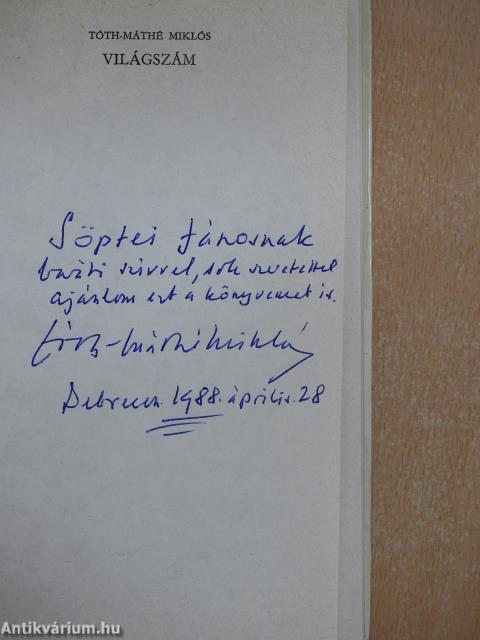 TÓTH-MÁTHÉ MIKLÓS
VILÁGSZÁM
Söptei Jánosnak
baráti szívvel, sok szeretettel
ajánlom ezt a könyvemet is.
Tóth-Máthé Miklós
Debrecen. 1988. április. 28
Antikvárium.hu